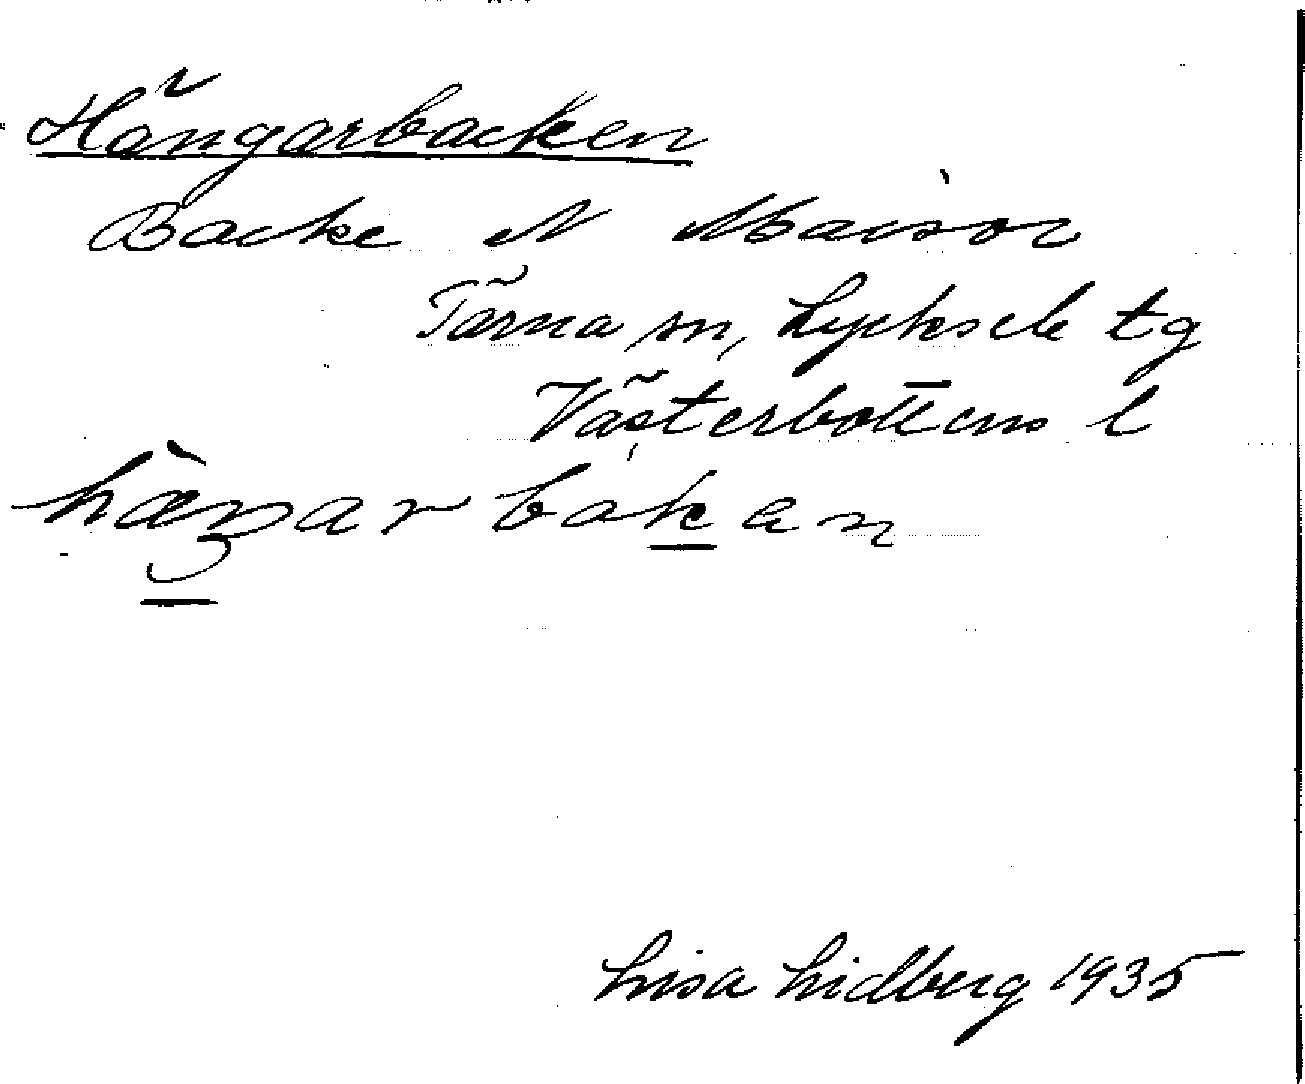 Hängarbacken
Backe N
Tärna sn, Lycksele tg
Västerbottens l
hæŋarbakan
Lisa Lidberg 1935